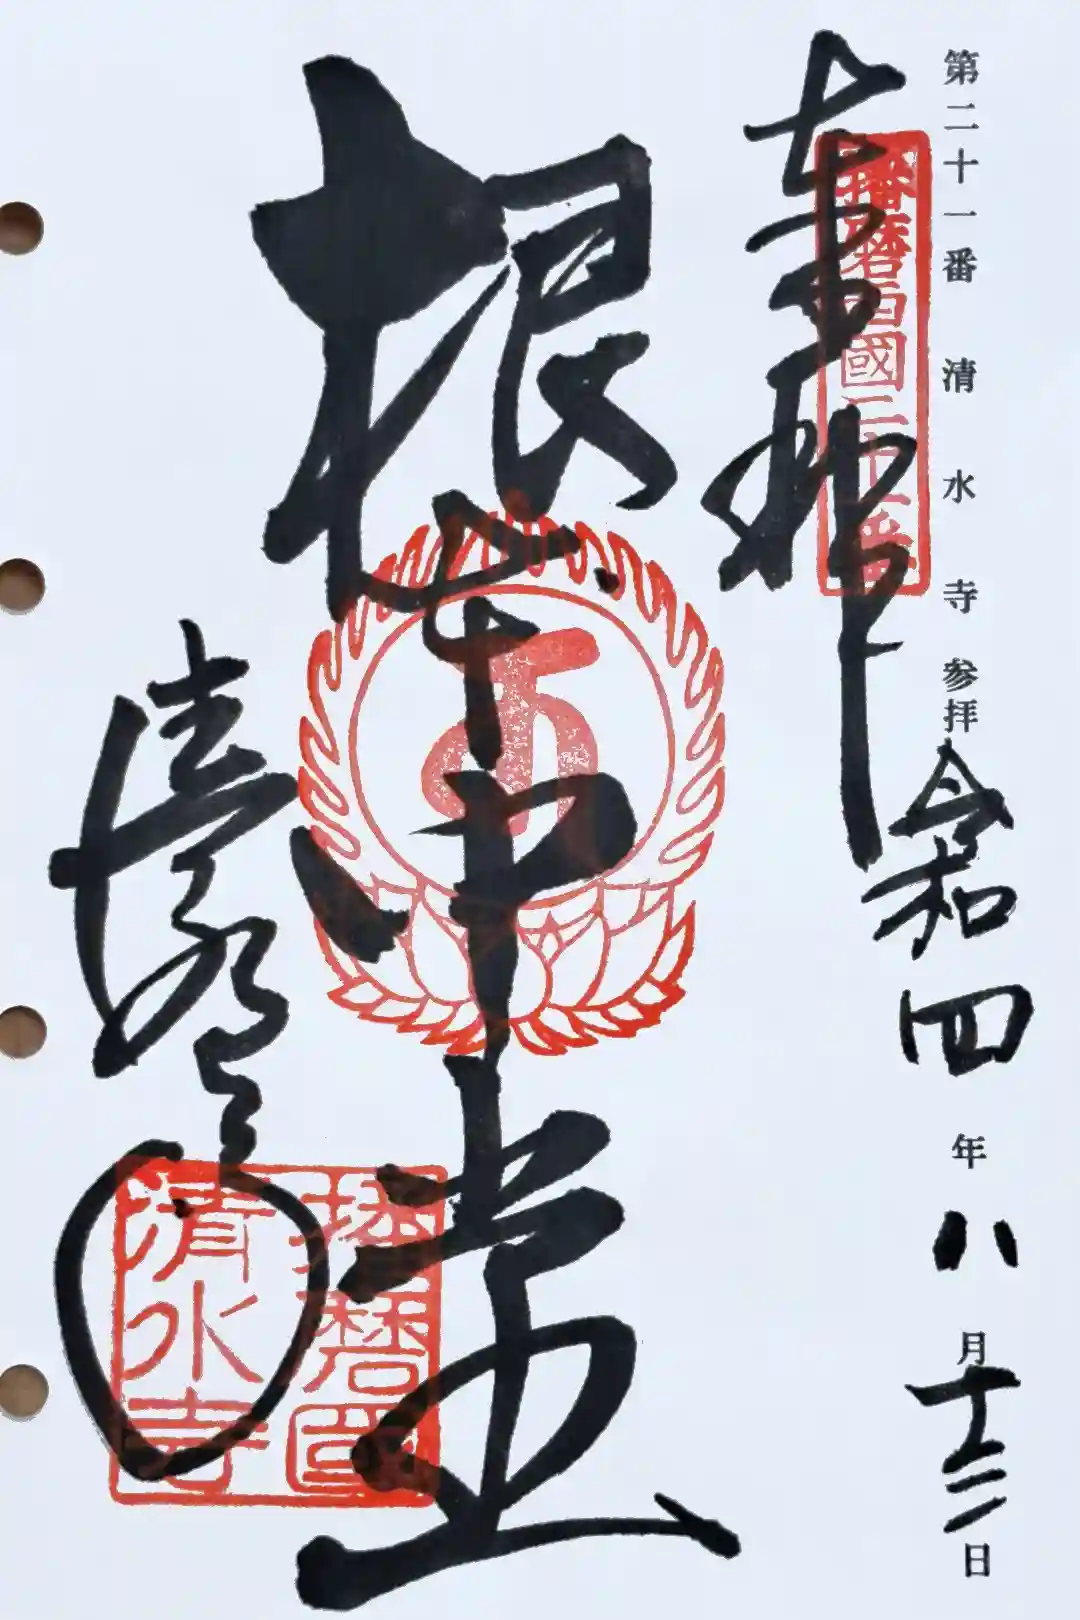 第二十一番 清水寺参拝 令和四年八月十三日
奉拝
播磨西國二十一番
根本中堂
清水寺
播磨國
清水寺